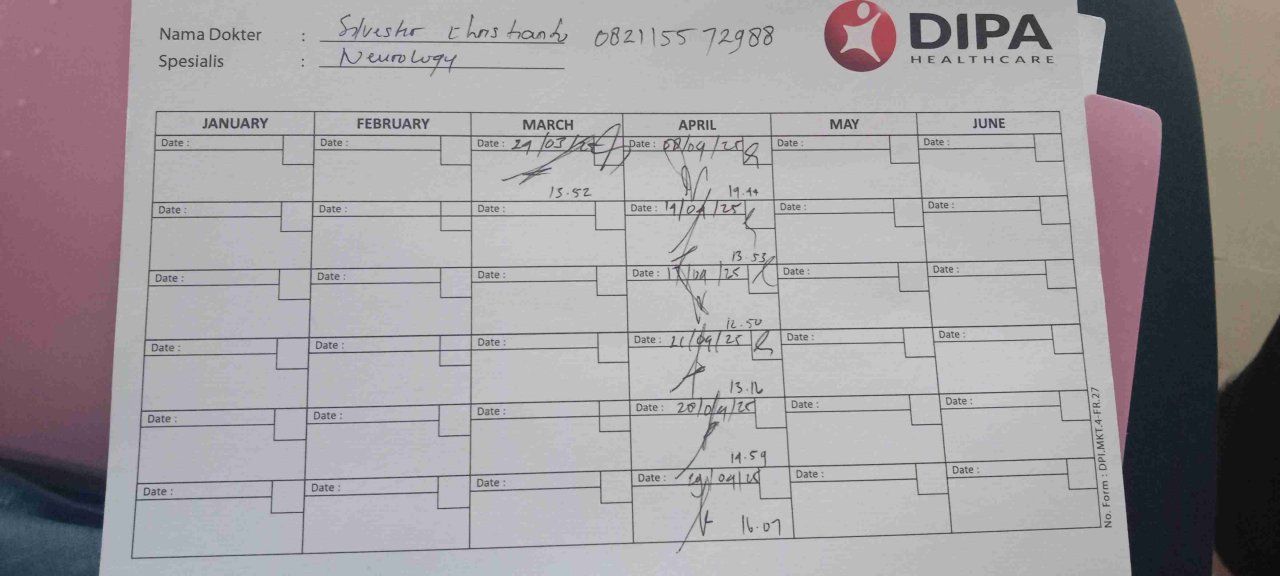 Nama Dokter : Silvester Christianto 082115572988
Spesialis : Neurology
DIPA
HEALTHCARE
JANUARY FEBRUARY MARCH APRIL MAY JUNE
Date : Date : Date : 29/03/25 Date : 08/04/25 Date : Date :
13.52 19.44
Date : Date : Date : Date : 14/04/25 Date : Date :
13.53
Date : Date : Date : Date : 17/04/25 Date : Date :
12.50
Date : Date : Date : Date : 21/04/25 Date : Date :
13.16
Date : Date : Date : Date : 28/04/25 Date : Date :
14.59
Date : Date : Date : Date : 29/04/25 Date : Date :
16.07
No. Form : DPI.MKT.4-FR.27